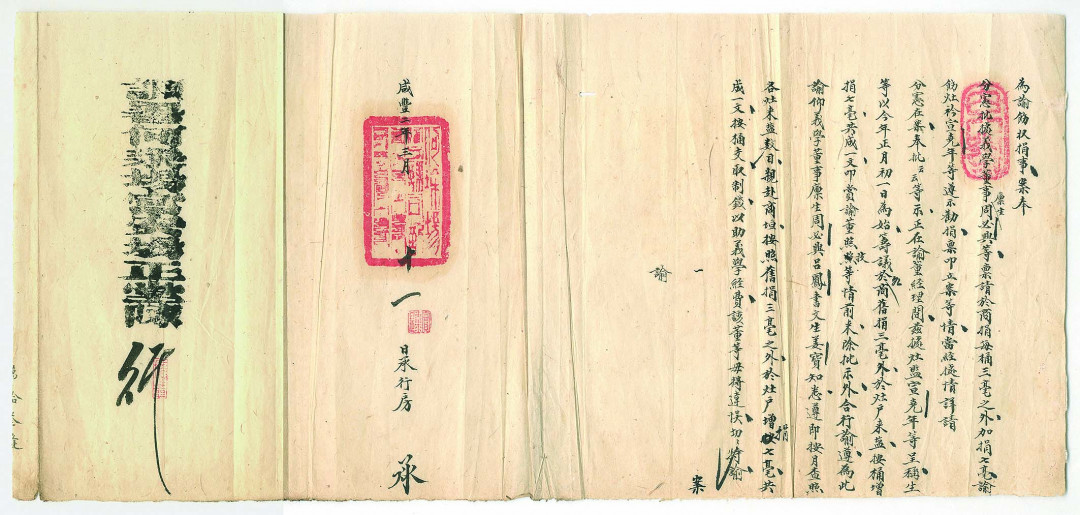 為諭飭狀捐事案奉
分憲批據義學董事廩生周必興等稟請於商捐每桶三毫之外加捐七毫諭
飭灶衿宣堯年等遵示勸捐稟叩立案等情當經據情詳請
分憲在案奉批云云等示正在諭董經理間茲據灶監宣堯年等呈稱生
等以今年正月初一日為始籌議於商舊捐三毫外於灶戶來鹽按桶增
捐七毫共成一文叩賞諭董照收等情前來除批示外合行諭遵為此
諭仰義學董事廩生周必興呂鳳書文生姜寶知悉遵即按月查照
各灶來鹽數目親赴商垣按照舊捐三毫之外於灶戶增捐七毫共
成一文按桶交取制錢以助義學經費該董等毋得違悞切切特諭
一諭
案
咸豐二年三月
十一
日承行房 承
行